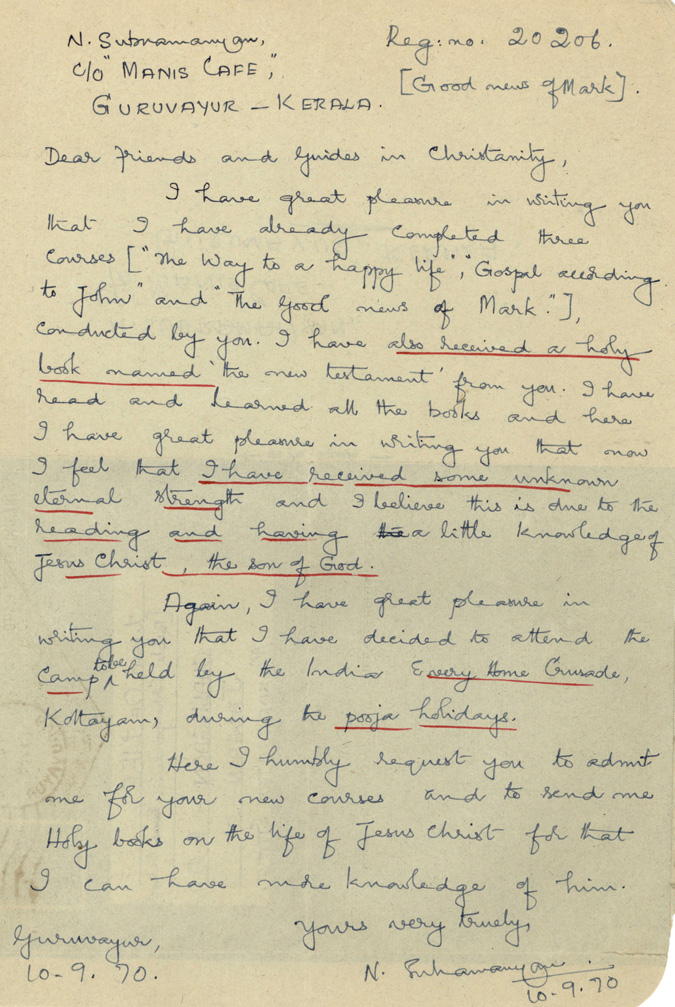 N. Subramanyan,
c/o "MANIS CAFE",
GURUVAYUR – KERALA.
Reg: no. 20206.
[Good news of Mark].
Dear friends and Guides in Christanity,
I have great pleasure in writing you
that I have already completed three
courses ["The Way to a happy life", "Gospel according
to John" and "The Good news of Mark."],
conducted by you. I have also received a holy
book named 'the new testament' from you. I have
read and learned all the books and here
I have great pleasure in writing you that now
I feel that I have received some unknown
eternal strength and I believe this is due to the
reading and having a little knowledge of
Jesus Christ, the son of God.
Again, I have great pleasure in
writing you that I have decided to attend the
camp to be held by the India Every Home Crusade,
Kottayam, during the pooja holidays.
Here I humbly request you to admit
me for your new courses and to send me
Holy books on the life of Jesus Christ for that
I can have more knowledge of him.
Yours very truely,
Guruvayur,
10-9.70.
N. Subramanyan.
10-9.70